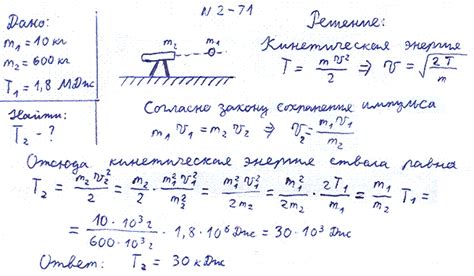 N 2-71
Дано:
m₁ = 10 кг
m₂ = 600 кг
T₁ = 1,8 МДж
Найти:
T₂ - ?
m₂ m₁
Решение:
Кинетическая энергия
T = mv²/2 ⇒ v = √(2T/m)
Согласно закону сохранения импульса
m₁v₁ = m₂v₂ ⇒ v₂ = m₁v₁/m₂
Отсюда кинетическая энергия ствола равна
T₂ = m₂v₂²/2 = m₂/2 · m₁²v₁²/m₂² = m₁²v₁²/2m₂ = m₁²/2m₂ · 2T₁/m₁ = m₁/m₂ T₁ =
= 10·10³г/600·10³г · 1,8·10⁶ Дж = 30·10³ Дж
Ответ: T₂ = 30 кДж